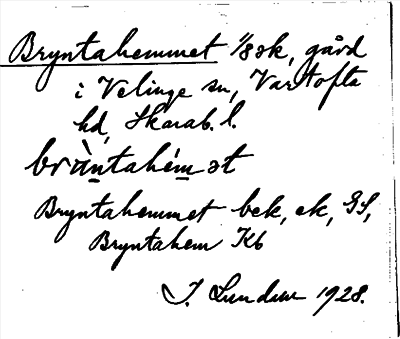 Bryntahemmet 1/8 sk, gård
i Velinge sn, Vartofta
hd, Skarab. l.
bràntahém ət
Bryntahemmet bek, ek, GS,
Bryntahem Kb
J. Lundén 1928.